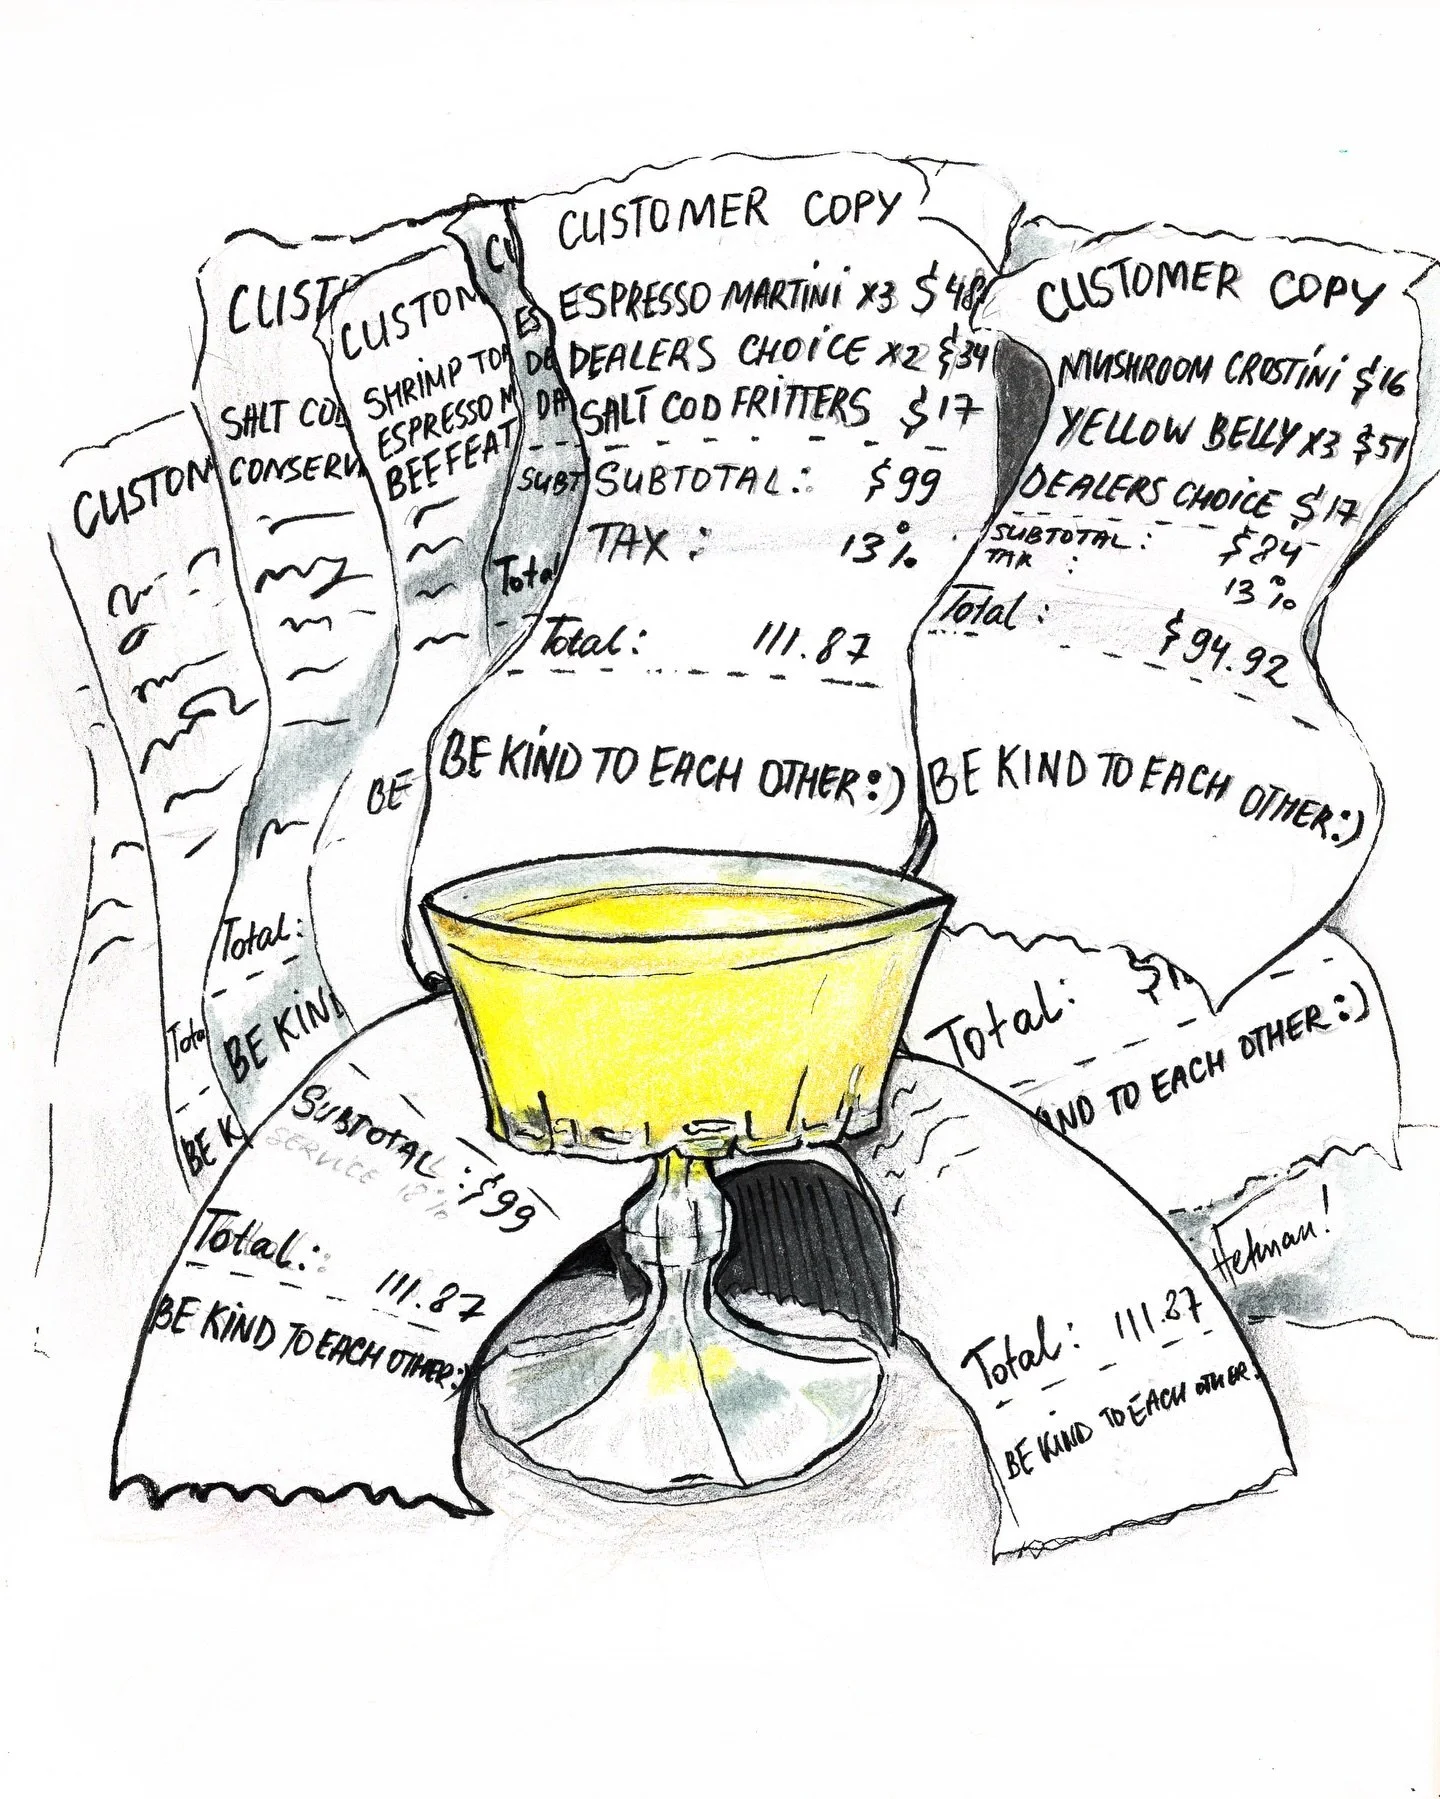 CUSTOM
Total
BE K
CUST
SALT COD
CONSERV
Total:
BE KIND
CUSTOM
SHRIMP TOA
ESPRESSO M
BEEFEAT
BE
CU
ES
DE
DA
SUBT
Total
CUSTOMER COPY
ESPRESSO MARTINI x3 $48
DEALERS CHOICE x2 $34
SALT COD FRITTERS $17
SUBTOTAL: $99
TAX : 13%
Total: 111.87
BE KIND TO EACH OTHER:)
CUSTOMER COPY
MUSHROOM CROSTINI $16
YELLOW BELLY x3 $51
DEALERS CHOICE $17
SUBTOTAL: $84
TAX : 13%
Total: $94.92
BE KIND TO EACH OTHER:)
SUBTOTAL: $99
SERVICE 18%
Total: 111.87
BE KIND TO EACH OTHER:)
Total: $1
IND TO EACH OTHER:)
Hetman!
Total: 111.87
BE KIND TO EACH OTHER: